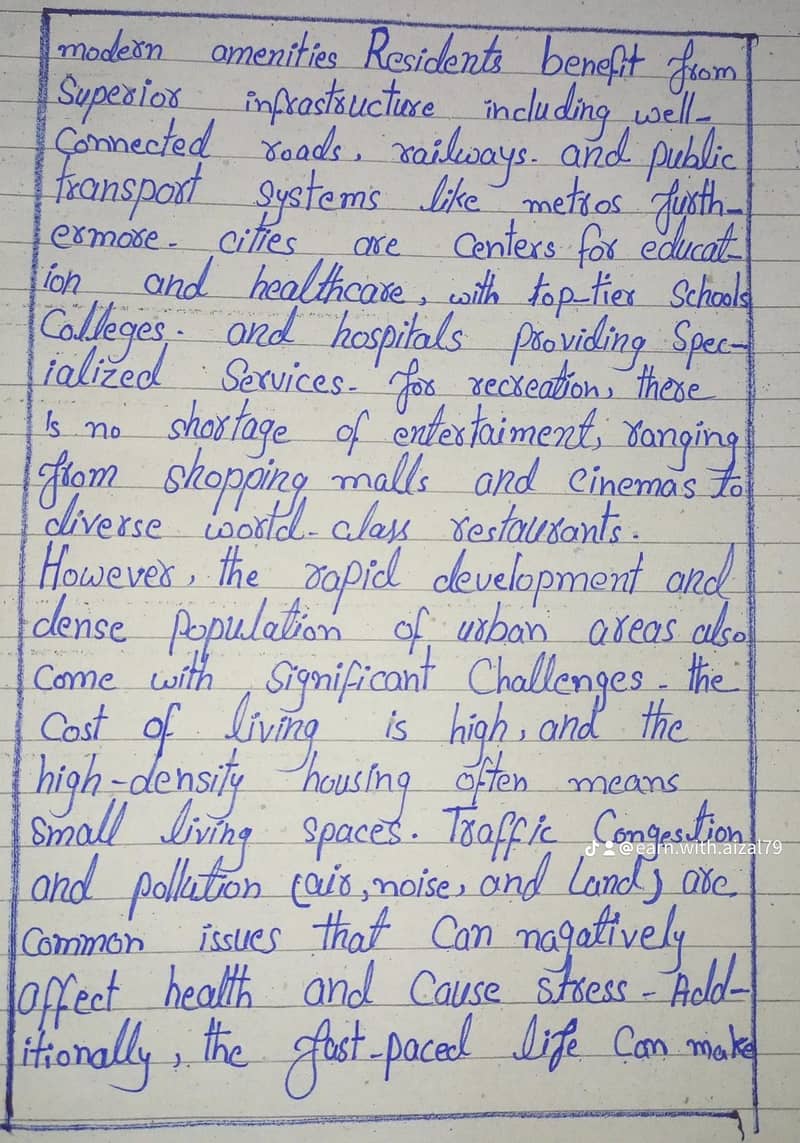 modern amenities Residents benefit from
Superior infrastructure including well-
Connected roads, railways. and public
transport systems like metros furth-
ermore- cities are Centers for educat-
ion and healthcare, with top-tier Schools
Colleges. and hospitals providing Spec-
ialized Services- for recreation, there
Is no shortage of entertaiment, ranging
from shopping malls and cinemas to
diverse world-class restaurants.
However, the rapid development and
dense population of urban areas also
Come with significant Challenges- the
Cost of living is high, and the
high-density housing often means
Small living spaces. Traffic Congestion
@earn.with.aizal79
and pollution (air, noise, and Land) are
Common issues that Can nagatively
affect health and Cause stress- Add-
itionally, the fast-paced life Can make